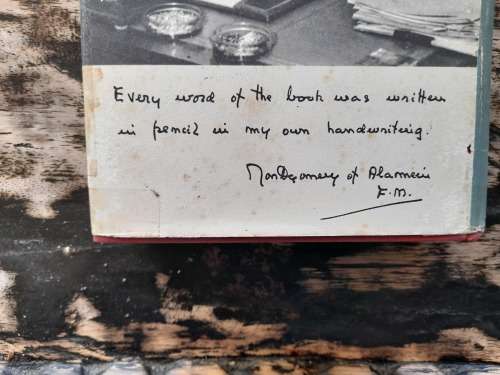 Every word of the book was written
in pencil in my own handwriting.
Montgomery of Alamein
F.M.